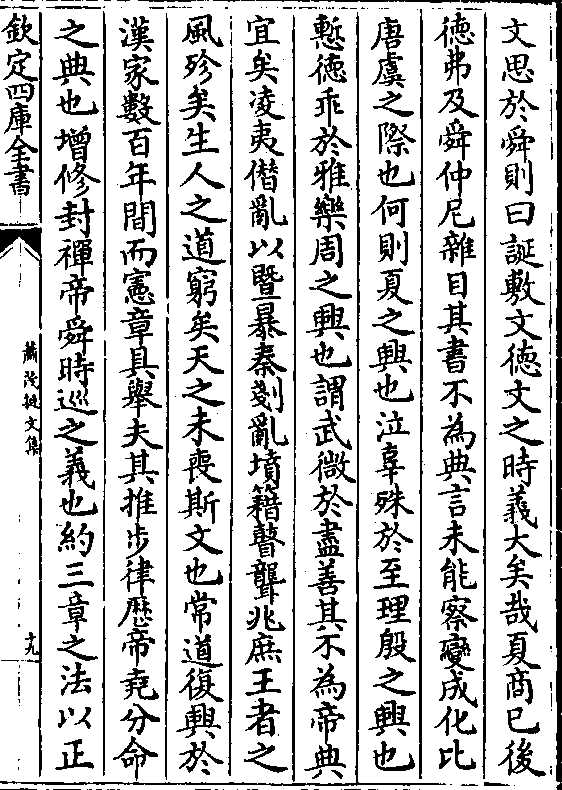 文思於舜則曰誕敷文德文之時義大矣哉夏商已後
德弗及舜仲尼雜目其書不為典言未能察變成化比
唐虞之際也何則夏之興也泣辜殊於至理殷之興也
慙德乖於雅樂周之興也謂武微於盡善其不為帝典
宜矣凌夷僭亂以暨暴秦剗亂墳籍瞽聾兆庶王者之
風殄矣生人之道窮矣天之未喪斯文也常道復興於
漢家數百年間而憲章具舉夫其推步律歴帝堯分命
之典也增修封禪帝舜時巡之義也約三章之法以正
欽定四庫全書
文集
十九